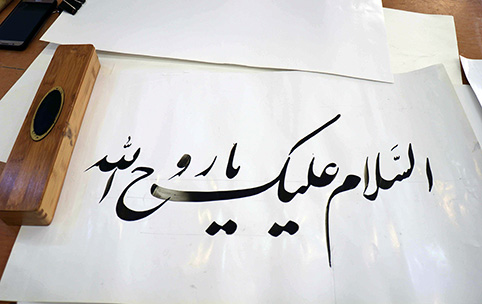 السَّلام علیک یا روح الله